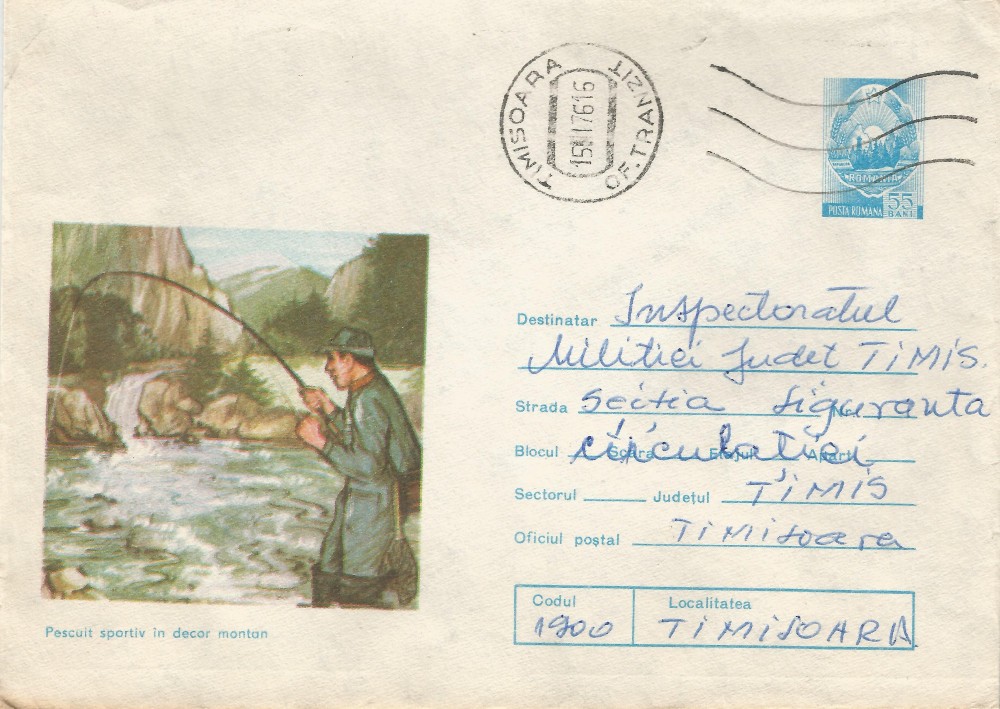 TIMISOARA
OF. TRANZIT
ROMANIA
POSTA ROMANA 55 BANI
Destinatar Inspectoratul
Militiei Judet TIMIS.
Strada Sectia Siguranta
Blocul Scara Etajul Apart. Circulatiei
Sectorul Județul TIMIS
Oficiul poștal TIMISoara
Codul Localitatea
1900 TIMISOARA
Pescuit sportiv în decor montan